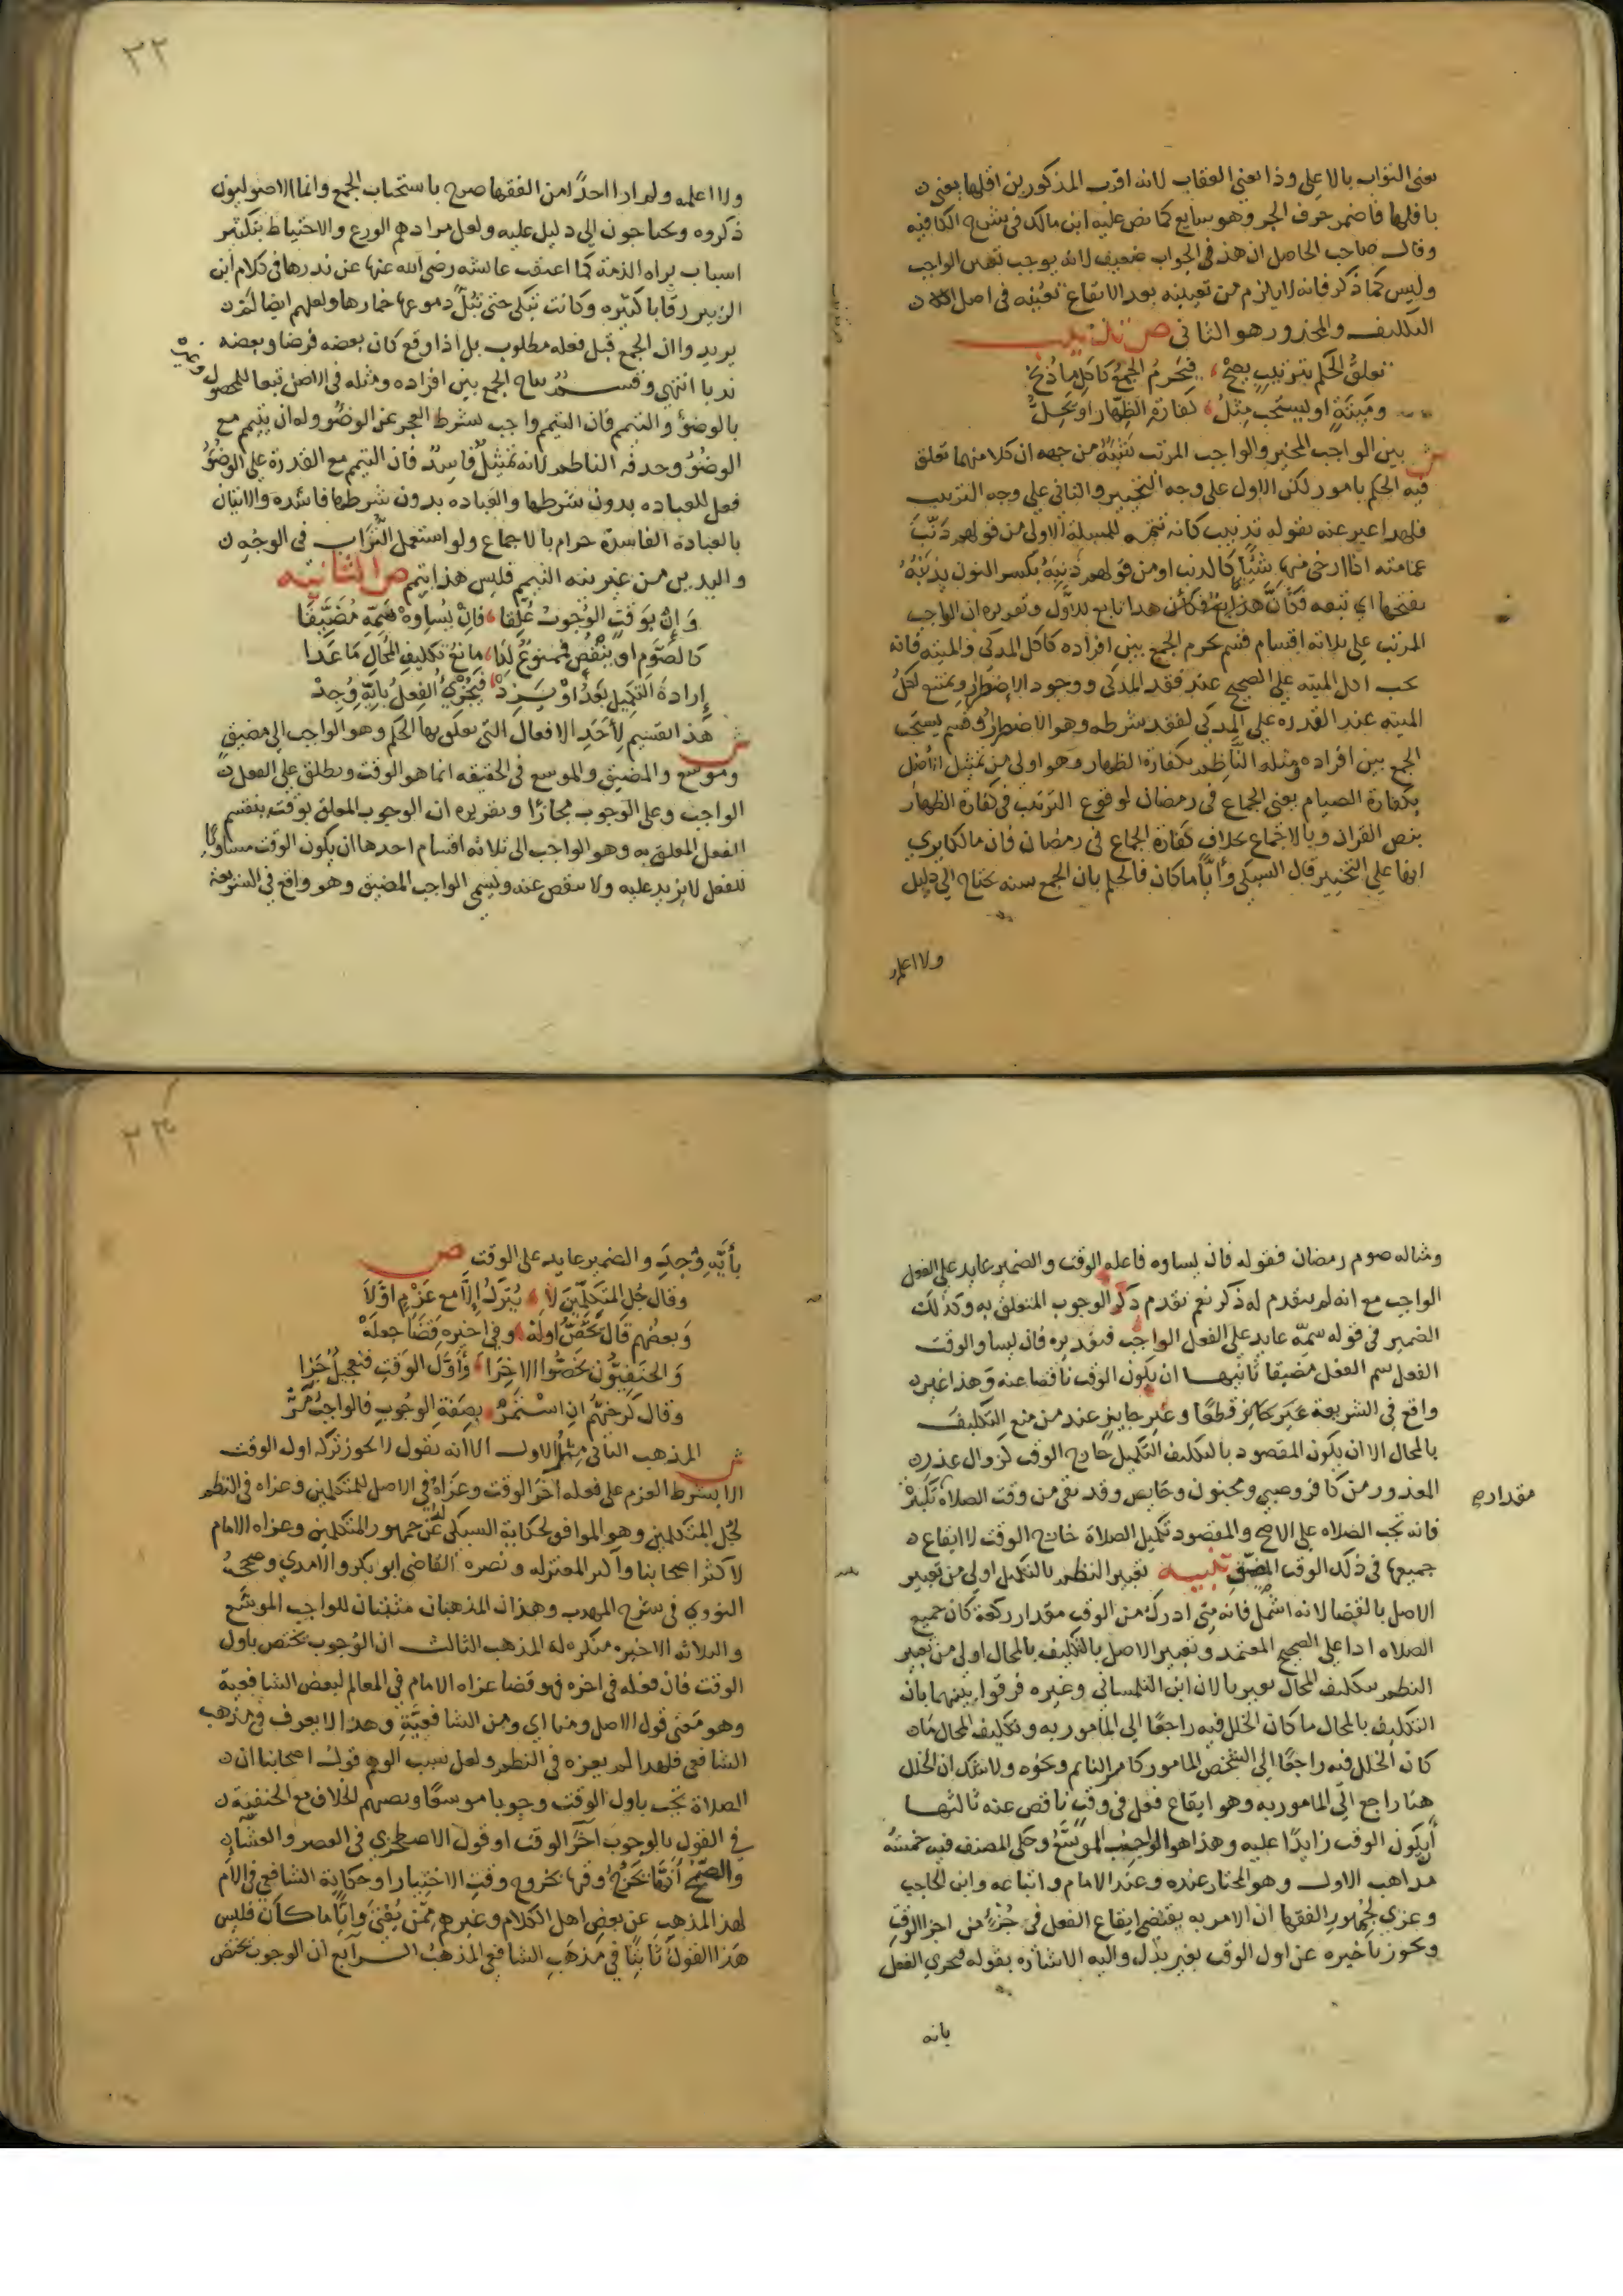 يعني الثواب بالاعلى وذا يعني العقاب لانه اقرب المذكورين اقلها يعني
باقلها فاضمر حرف الجر وهو سايغ كما نص عليه ابن مالك في شرح الكافيه
وقال صاحب الحاصل ان هذ في الجواب ضعيف لانه يوجب تعين الواجب
وليس كما ذكر فانه لا يلزم من تعيينه بعد الايقاع تعينه في اصل
التكليف والمحذور هو الثاني ص تذنيب
تعلق الحكم بترتيب يصح فيحرم الجمع كاكل ما ذبح
وميتة او يستحب مثل كفارة الظهار او يحل
ش بين الواجب المخير والواجب المرتب شبه من جهه ان كلا منهما تعلق
فيه الحكم بامور لكن الاول على وجه التخيير والثاني على وجه الترتيب
فلهذا عبر عنه بقوله تذنيب كانه تتمه للمسلة الاولى من قولهم ذنب
عمامته اذا ارخى منها شيئا كالذنب او من قولهم ذنبه بكسر النون يذنبه
بفتحها اي تبعه فكان هذا تابع للاول وتقريره ان الواجب
المرتب على ثلاثه اقسام قسم يحرم الجمع بين افراده كاكل المذكى والميته فانه
يجب اكل الميته على الصحيح عند فقد المذكى ووجود الاضطرار ويمتنع اكل
الميته عند القدره على المذكى لفقد شرطه وهو الاضطرار وقسم يستحب
الجمع بين افراده ومثله الناظم بكفارة الظهار وهو اولى من تمثيل اصل
بكفارة الصيام يعني الجماع في رمضان لوقوع الترتيب في كفارة الظهار
بنص القران وبالاجماع بخلاف كفارة الجماع في رمضان فان مالكا يري
انها على التخيير قال السبكي وايا ما كان فالحكم بان الجمع سنه يحتاج الى دليل
ولا اعلم
٣٢
ولا اعلمه ولم ار احدا من الفقها صرح باستحباب الجمع وانما الاصوليون
ذكروه ويحتاجون الى دليل عليه ولعل مرادهم الورع والاحتياط بتكثير
اسباب براه الذمة كما اعتقت عائشه رضي الله عنها عن نذرها في كلام ابن
الزبير رقابا كثيره وكانت تبكي حتى تبل دموعها خمارها ولعلهم ايضا لم
يريدوا ان الجمع قبل فعله مطلوب بل اذا وقع كان بعضه فرضا وبعضه
ندبا انتهي وقسم يباح الجمع بين افراده ومثله في الاصل تبعا للمحصول وغيره
بالوضؤ والتيمم فان التيمم واجب بشرط العجز عن الوضؤ وله ان يتيمم مع
الوضؤ وحذفه الناظم لانه تمثيل فاسد فان التيمم مع القدرة على الوضؤ
فعل للعباده بدون شرطها والعباده بدون شرطها فاسده والاتيان
بالعبادة الفاسدة حرام بالاجماع ولو استعمل التراب في الوجه
واليدين من غير نيه التيمم فليس هذا بتيمم ص الثانيه
وان بوقت الوجوب علقا فان يساوه فسمه مضيقا
كالصوم او ينقص فممنوع لذا مانع تكليف المحال ما عدا
ارادة التكميل بعد او يزد فيجزي الفعل بايه وجد
ش هذا تقسيم لاحد الافعال التي تعلق بها الحكم وهو الواجب الى مضيق
وموسع والمضيق والموسع في الحقيقه انما هو الوقت ويطلق على الفعل
الواجب وعلى الوجوب مجازا وتقريره ان الوجوب المعلق بوقته ينقسم
الفعل المعلق به وهو الواجب الى ثلاثه اقسام احدها ان يكون الوقت مساويا
للفعل لا يزيد عليه ولا ينقص عنه ويسمى الواجب المضيق وهو واقع في الشريعة
ومثاله صوم رمضان فقوله فان يساوه فاعله الوقت والضمير عايد على الفعل
الواجب مع انه لم يتقدم له ذكر نعم تقدم ذكر الوجوب المتعلق به وكذلك
الضمير في قوله سمه عايد على الفعل الواجب فتقديره فان يساو الوقت
الفعل سم الفعل مضيقا ثانيها ان يكون الوقت ناقصا عنه وهذا غير
واقع في الشريعة غير جائز قطعا وغير جايز عند من منع التكليف
بالمحال الا ان يكون المقصود بالتكليف التكميل خارج الوقت كزوال عذر
المعذور من كافر وصبي ومجنون وحايض وقد بقي من وقت الصلاة تكبيرة
مقدار ص
فانه تجب الصلاه على الاصح والمقصود تكميل الصلاة خارج الوقت لا ايقاع
جميعها في ذلك الوقت الضيق تنبيه تعبير النظم بالتكميل اولى من تعبير
الاصل بالقضا لانه اشمل فانه متى ادرك من الوقت مقدار ركعة كان جميع
الصلاه ادا على الصحيح المعتمد وتعبير الاصل بالتكليف بالمحال اولى من تعبير
النظم بتكليف المحال تعبير بالان ابن التلمساني وغيره فرقوا بينهما بان
التكليف بالمحال ما كان الخلل فيه راجعا الى المامور به وتكليف المحال ما
كان الخلل فيه راجعا الى الشخص المامور كامر النايم ونحوه ولا شك ان الخلل
هنا راجع الى المامور به وهو ايقاع فعل في وقت ناقص عنه ثالثها
ان يكون الوقت زايدا عليه وهذا هو الواجب الموسع وحكى المصنف فيه خمسه
مذاهب الاول وهو المختار عنده وعند الامام واتباعه وابن الحاجب
وعزي لجمهور الفقها ان الامر به يقتضي ايقاع الفعل في جزء من اجزا الوقت
ويجوز تاخيره عن اول الوقت بغير بدل واليه الاشاره بقوله فيجزي الفعل
بايه
٣٣
بأيه وجد والضمير عايد على الوقت ص
وقال جل المتكلمين لا يترك الا مع عزم اولا
وبعضهم قال يخص اوله وفي اخيره قضا جعله
والحنفيون يخصوا الاخرا واول الوقت فتعجيل جزا
وقال كرخيهم ان استمر بصفة الوجوب فالواجب مر
ش المذهب الثاني مثل الاول الا انه يقول لا يجوز تركه اول الوقت
الا بشرط العزم على فعله اخر الوقت وعزاه في الاصل للمتكلمين وعزاه في النظم
لجل المتكلمين وهو الموافق لحكاية السبكي له عن جمهور المتكلمين وعزاه الامام
لاكثر اصحابنا واكثر المعتزله ونصره القاضي ابو بكر والامدي وصححه
النووي في شرح المهذب وهذان المذهبان مثبتان للواجب الموسع
والثلاثه الاخيره منكره له المذهب الثالث ان الوجوب يختص باول
الوقت فان فعله في اخره فهو قضا عزاه الامام في المعالم لبعض الشافعية
وهو معنى قول الاصل ومنا اي ومن الشافعية وهذا لا يعرف في مذهب
الشافعي فلهذا لم يعزه في النظم ولعل سبب الوهم قول اصحابنا ان
الصلاة تجب باول الوقت وجوبا موسعا وبصهم الخلاف مع الحنفيه
في القول بالوجوب اخر الوقت او قول الاصطخري في العصر والعشا
والصبح انه يخرج وقتها بخروج وقت الاختيار او حكاية الشافعي في الام
لهذا المذهب عن بعض اهل الكلام وغيرهم ممن يفتي وايا ما كان فليس
هذا القول ثابتا في مذهب الشافعي المذهب الرابع ان الوجوب يختص